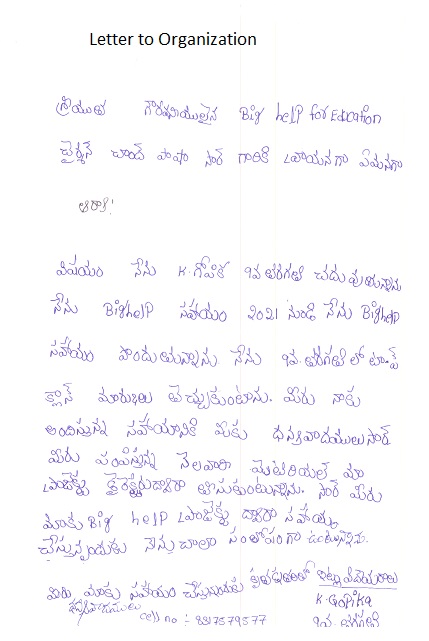 Letter to Organization
శ్రీయుత గౌరవనీయులైన Big help for Education
చైర్మన్ చాంద్ పాషా సార్ గారికి వ్రాయునది ఏమనగా
విషయం నేను K. గోపిక 9వ తరగతి చదువుతున్నాను
నేను Bighelp సహాయం 2021 నుండి నేను Bighelp
సహాయం పొందుతున్నాను నేను 9వ తరగతి లో టాప్
క్లాస్ మార్కులు తెచ్చుకుంటాను. మీరు నాకు
అందిస్తున్న సహాయానికి మీకు ధన్యవాదములు సార్
మీరు పంపిస్తున్న నెలవారీ మెటీరియల్ మా
ప్రాజెక్టు డైరెక్టర్ ద్వారా తీసుకుంటున్నాను. సార్ మీరు
మాకు Big help ప్రాజెక్టు ద్వారా సహాయం
చేస్తున్నందుకు నేను చాలా సంతోషంగా ఉంటున్నాను.
మీరు మాకు సహాయం చేస్తున్నందుకు ఇట్లు విదేయురాలు
ధన్యవాదములు K. Gopika
cell no :- 8817579577 9వ తరగతి